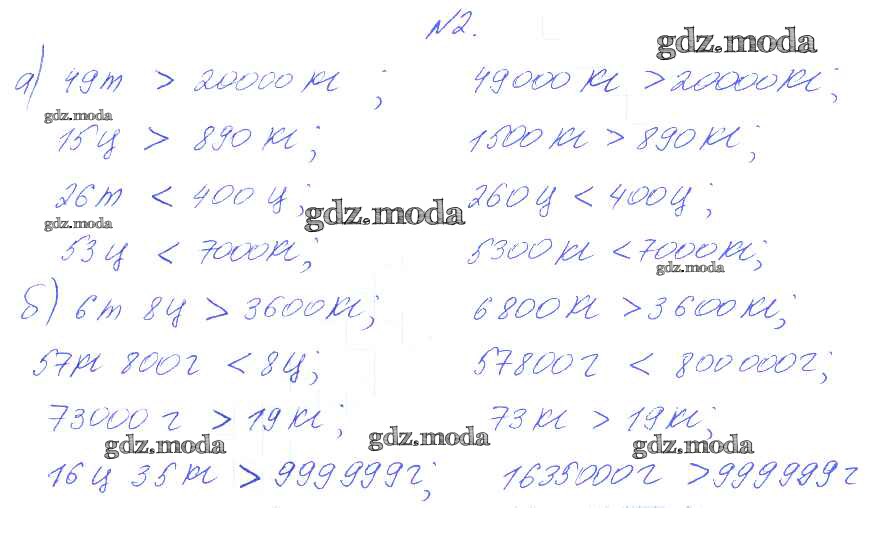 №2.
gdz.moda
а) 49т > 20000кг ; 49000кг > 20000кг;
gdz.moda
15ц > 890кг; 1500кг > 890кг;
26т < 400ц; 260ц < 400ц;
gdz.moda
gdz.moda
53ц < 7000кг; 5300кг < 7000кг;
gdz.moda
б) 6т 8ц > 3600кг; 6800кг > 3600кг;
57кг 800г < 8ц; 57800г < 800000г;
73000г > 19кг; 73кг > 19кг;
gdz.moda gdz.moda gdz.moda
16ц 35кг > 999999г; 1635000г > 999999г